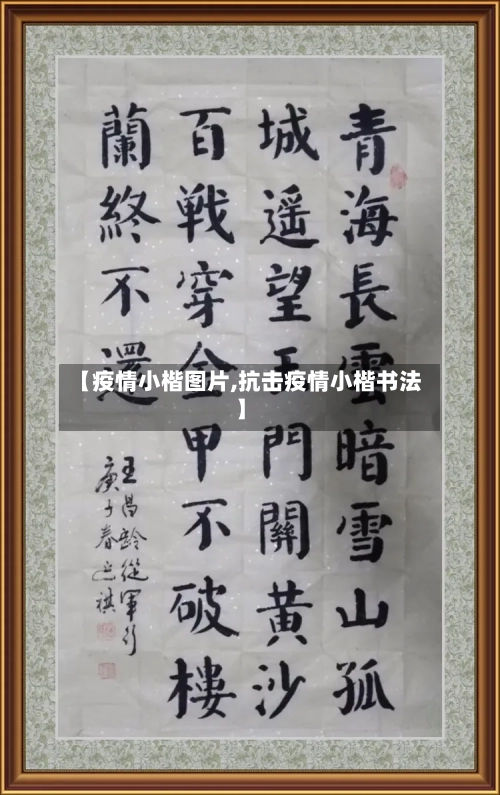 青海長雲暗雪山孤
城遥望玉門關黄沙
百戦穿金甲不破樓
蘭終不還
王昌龄從軍行
庚子春
【疫情小楷图片,抗击疫情小楷书法
】